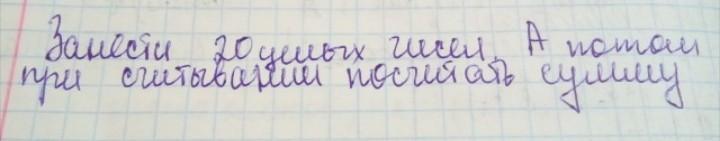 Занести 20 целых чисел. А потом
при считывании посчитать сумму